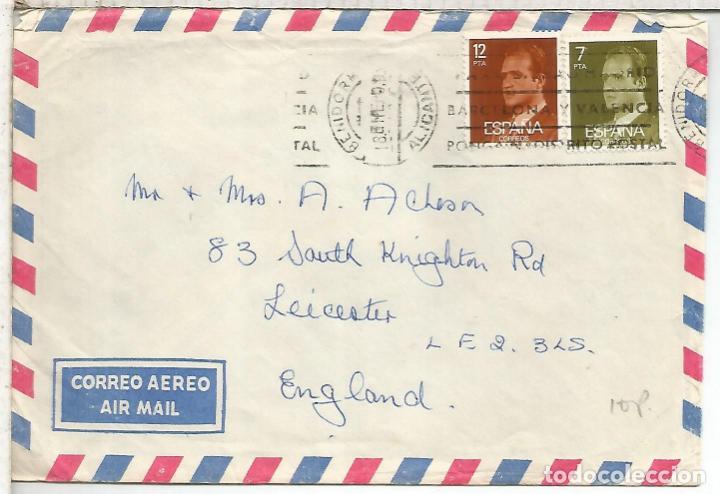 12 PTA
7 PTA
ESPAÑA
CORREOS
ESPAÑA
BENIDORM
ALICANTE
CIA
BARCELONA Y VALENCIA
TAL
PONGA DISTRITO POSTAL
Mr + Mrs. A. Acheson
83 South Knighton Rd
Leicester
LE2. 3LS.
England.
CORREO AEREO
AIR MAIL
10P.
todocoleccion